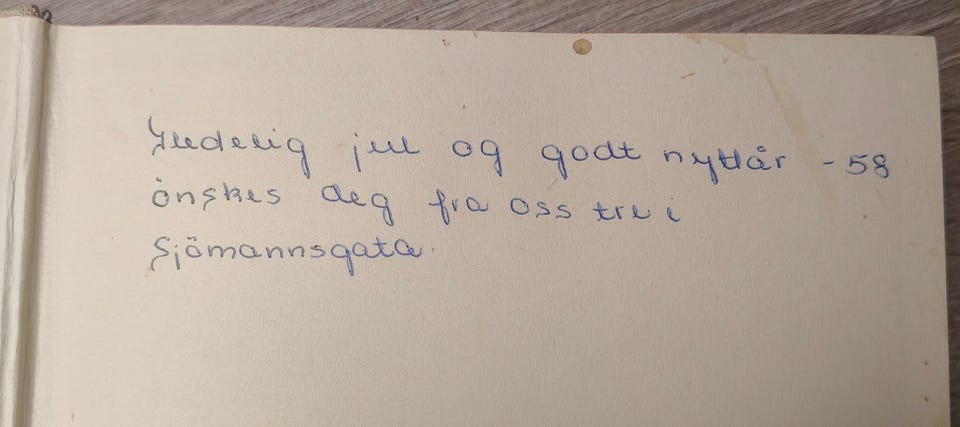 Gledelig jul og godt nyttår - 58
önskes deg fra oss tre i
Sjömannsgata.